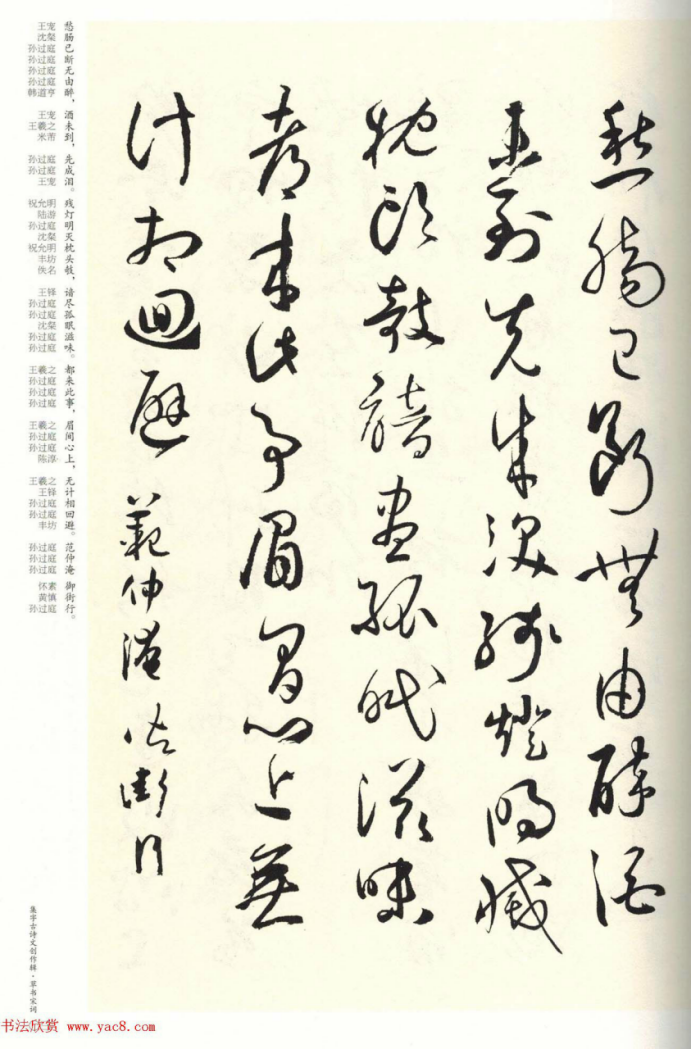 愁腸已斷無由醉酒
未到先成淚殘燈明滅
枕頭欹諳盡孤眠滋味
都来此事眉間心上無
計相迴避 範仲淹 御街行
王宠 愁
沈粲 肠
孙过庭 已
孙过庭 断
孙过庭 无
孙过庭 由
韩道亨 醉，
王宠 酒
王羲之 未
米芾 到，
孙过庭 先
孙过庭 成
王宠 泪。
祝允明 残
陆游 灯
孙过庭 明
沈粲 灭
祝允明 枕
丰坊 头
佚名 敧，
王铎 谙
孙过庭 尽
孙过庭 孤
沈粲 眠
孙过庭 滋
孙过庭 味。
王羲之 都
孙过庭 来
孙过庭 此
孙过庭 事，
王羲之 眉
孙过庭 间
孙过庭 心
陈淳 上，
王羲之 无
王铎 计
孙过庭 相
孙过庭 回
丰坊 避。
孙过庭 范
孙过庭 仲
孙过庭 淹
怀素 御
黄慎 街
孙过庭 行。
集字古诗文创作辑·草书宋词
书法欣赏 www.yac8.com